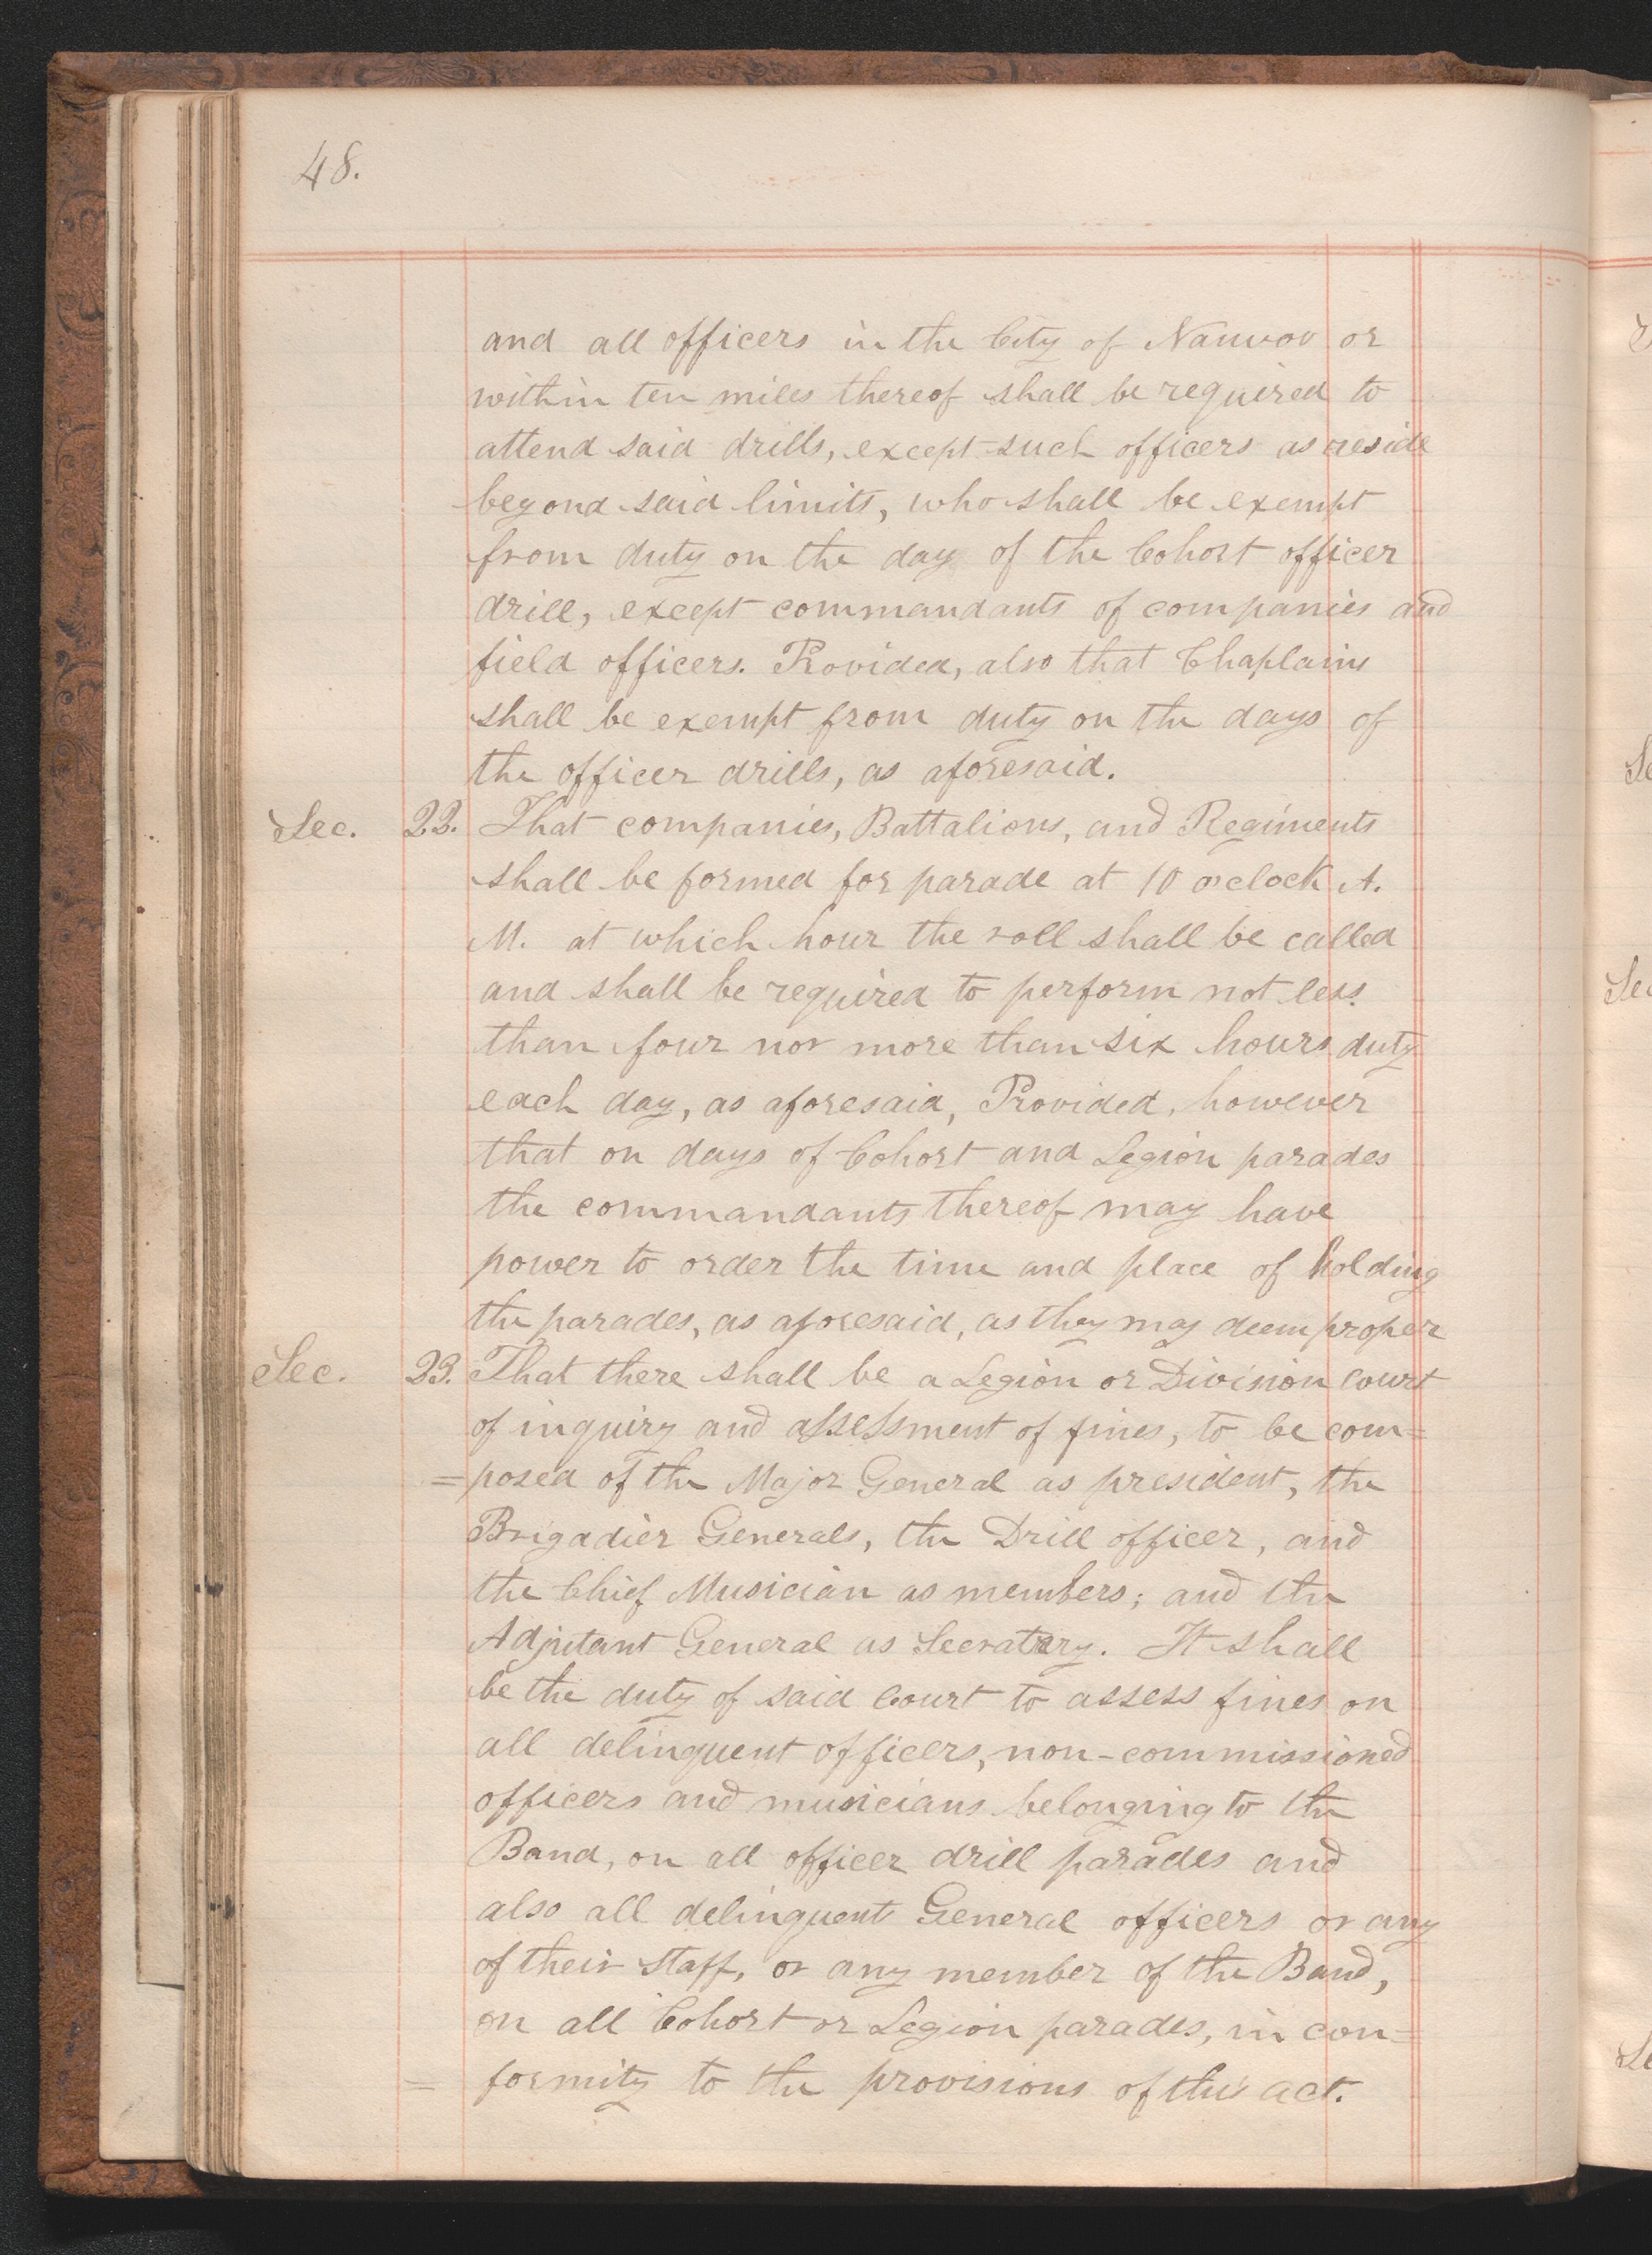 48.
and all officers in the City of Nauvoo or
within ten miles thereof shall be required to
attend said drills, except such officers as reside
beyond said limits, who shall be exempt
from duty on the day of the Cohort officer
drill, except commandants of companies and
field officers. Provided, also that Chaplains
shall be exempt from duty on the days of
the officer drills, as aforesaid.
Sec. 22. That companies, Battalions, and Regiments
shall be formed for parade at 10 o'clock A.
M. at which hour the roll shall be called
and shall be required to perform not less
than four nor more than six hours duty
each day, as aforesaid, Provided, however
that on days of Cohort and Legion parades
the commandants thereof may have
power to order the time and place of holding
the parades, as aforesaid, as they may deem proper
Sec. 23. That there shall be a Legion or Division court
of inquiry and assessment of fines, to be com=
=posed of the Major General as president, the
Brigadier Generals, the Drill officer, and
the Chief Musician as members; and the
Adjutant General as Secratery. It shall
be the duty of said Court to assess fines on
all delinquent officers, non-commissioned
officers and musicians belonging to the
Band, on all officer drill parades and
also all delinquent General officers or any
of their staff, or any member of the Band,
on all Cohort or Legion parades, in con=
= formity to the provisions of this act.